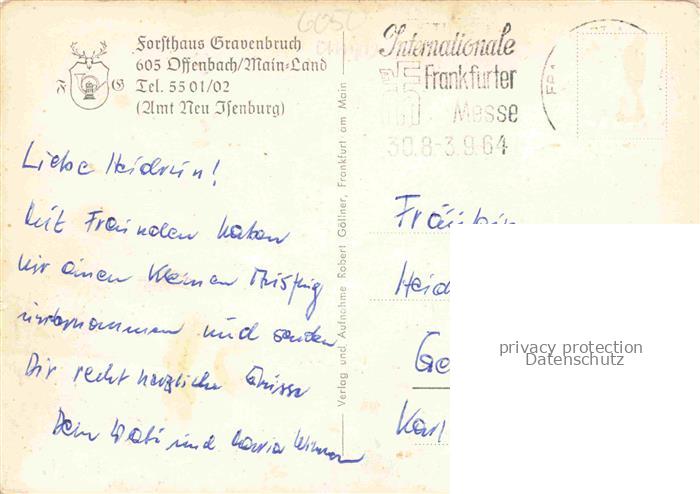 6050
Forsthaus Gravenbruch
605 Offenbach/Main-Land
Tel. 55 01/02
(Amt Neu Isenburg)
F G
Internationale
Frankfurter
Messe
30.8.-3.9.64
Liebe Heidrun!
Mit Freunden haben
wir einen kleinen Ausflug
unternommen und senden
Dir recht herzliche Grüsse
Dein Vati und
Verlag und Aufnahme Robert Göllner, Frankfurt am Main
Fräulein
Heid
Ge
Karl
privacy protection
Datenschutz